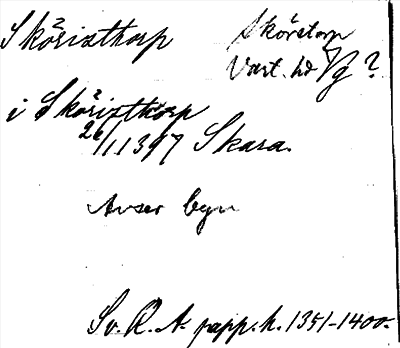 Sköristthorp Sköretorp
Vart. hd Vg ?
i Sköristthorp
20/1 1397 Skara.
Avser byn
Sv. R. A. papp. h. 1351-1400.